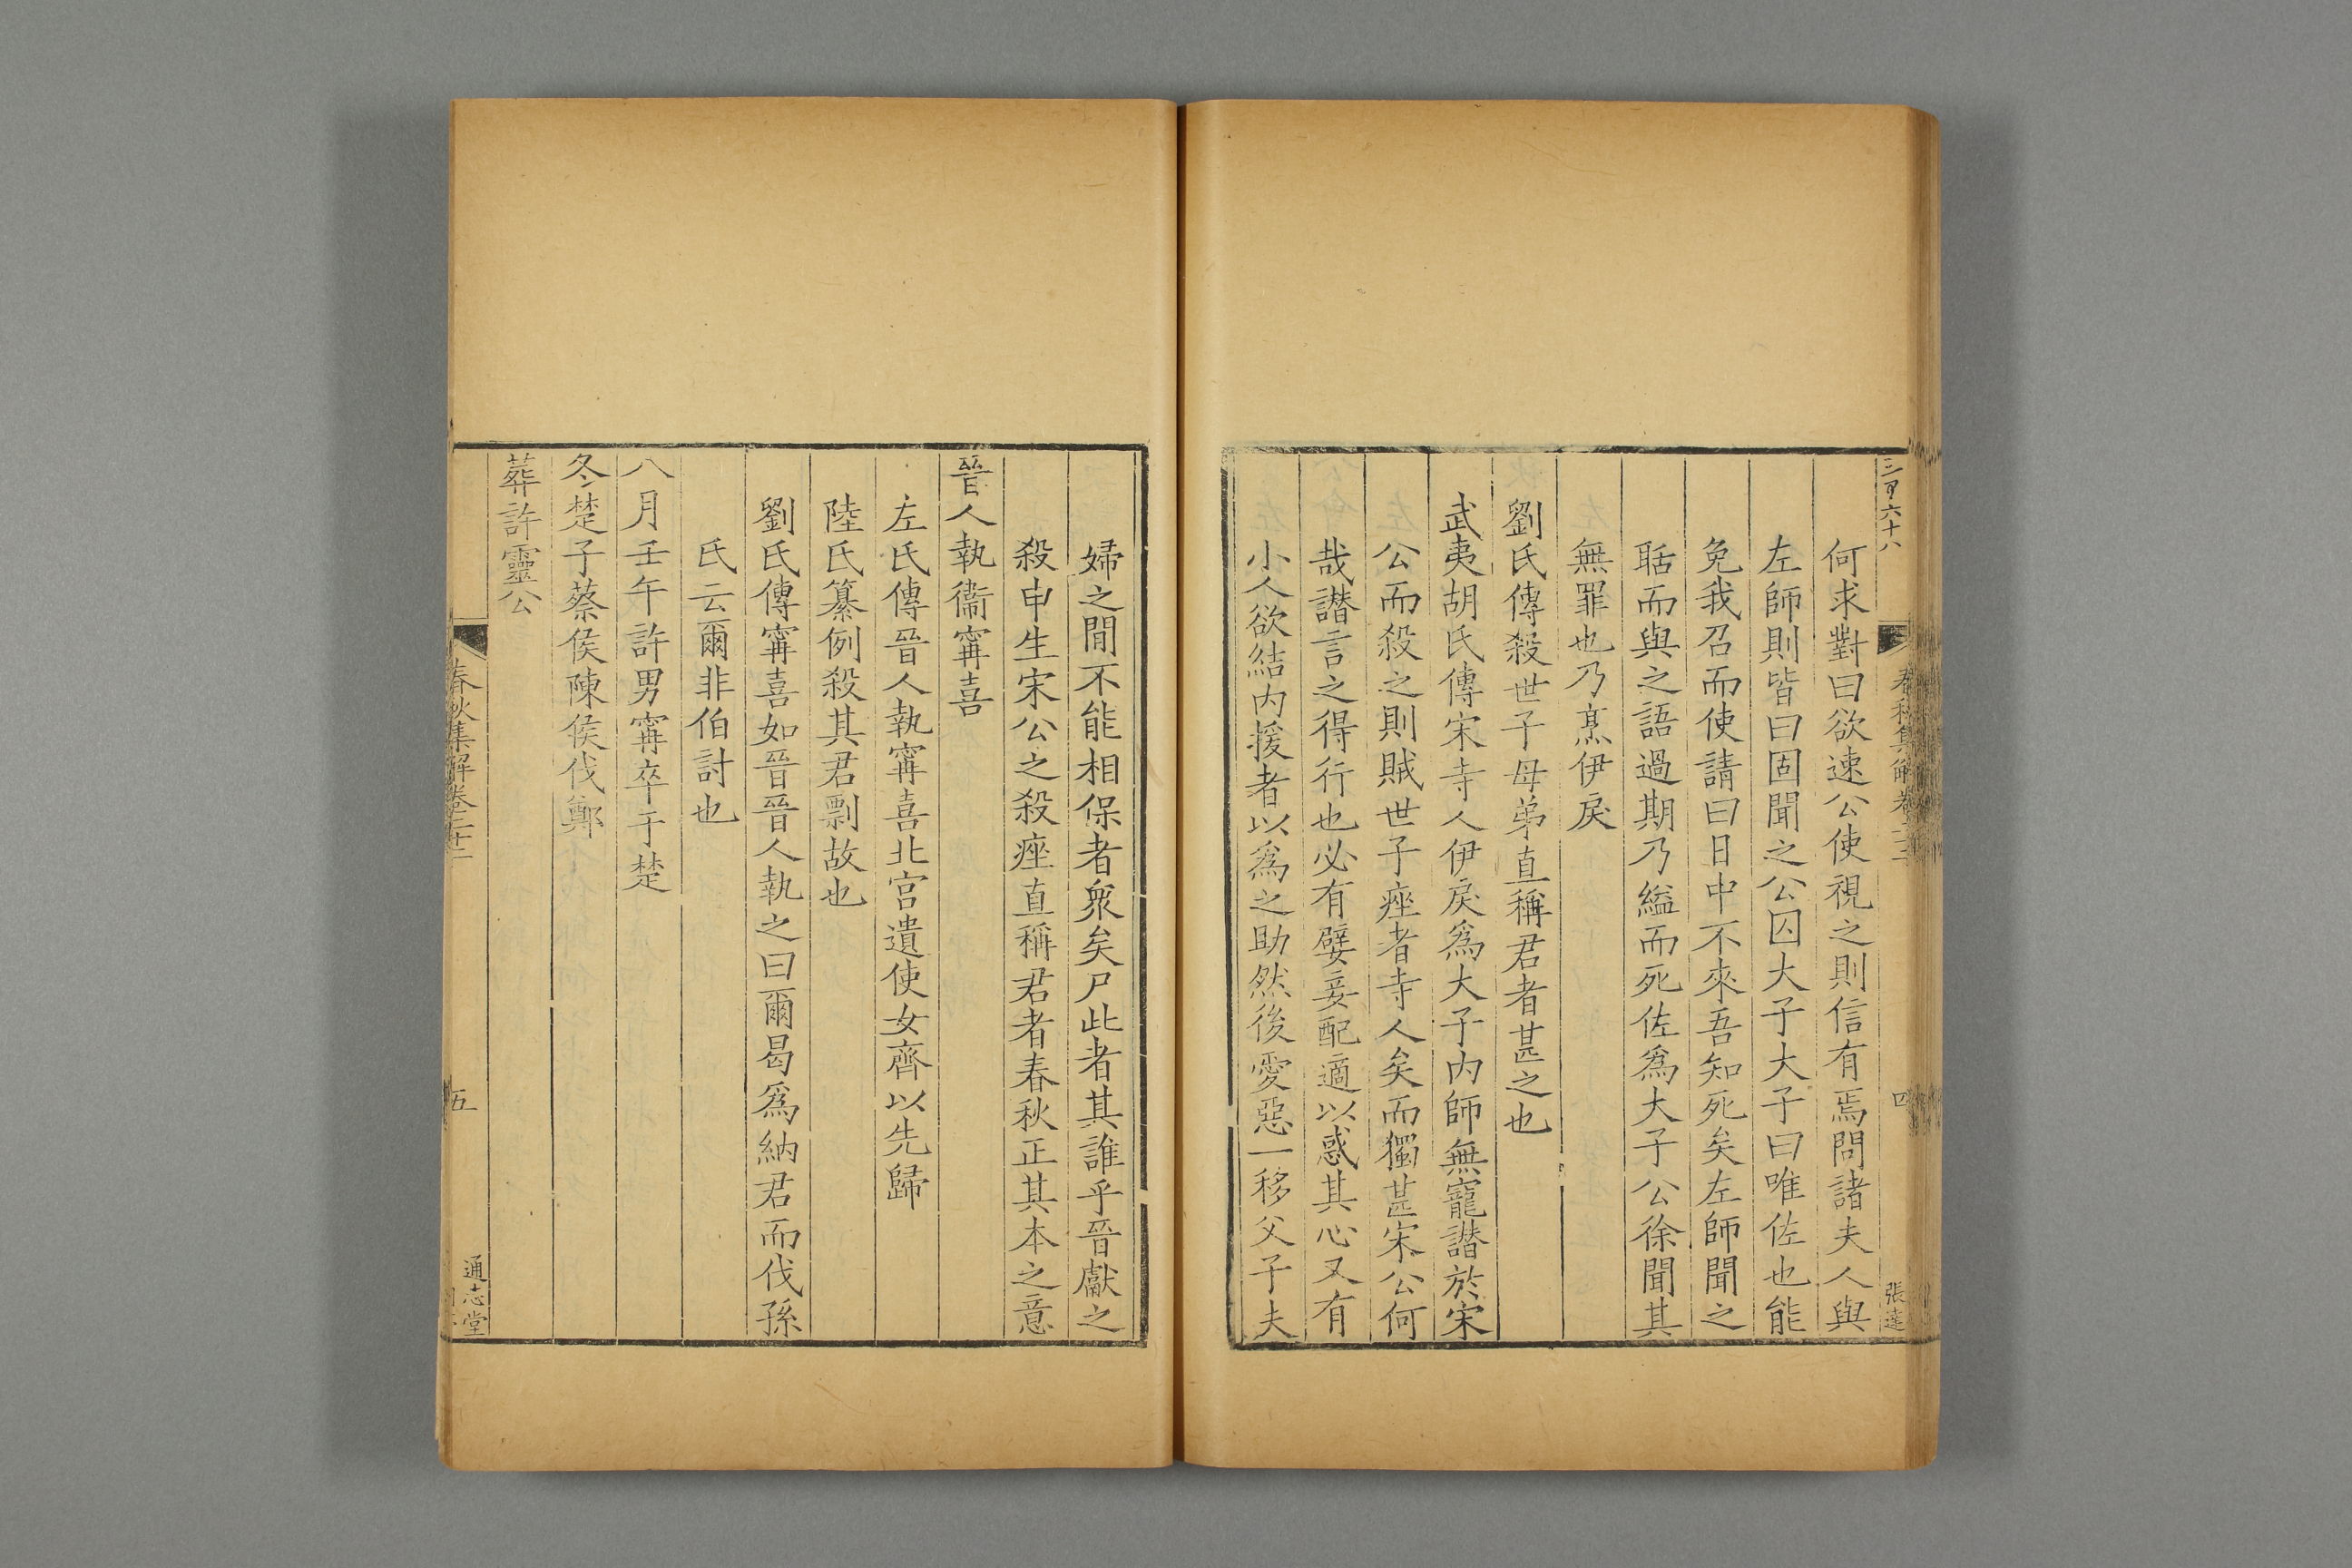 何求對曰欲速公使視之則信有焉問諸夫人與
左師則皆曰固聞之公囚大子大子曰唯佐也能
免我召而使請曰日中不來吾知死矣左師聞之
聒而與之語過期乃縊而死佐爲大子公徐聞其
無罪也乃烹伊戾
劉氏傳殺世子母弟直稱君者甚之也
武夷胡氏傳宋寺人伊戾爲大子内師無寵譖於宋
公而殺之則賊世子痤者寺人矣而獨甚宋公何
哉譖言之得行也必有嬖妾配適以惑其心又有
小人欲結内援者以爲之助然後愛惡一移父子夫
四
張達
婦之閒不能相保者衆矣尸此者其誰乎晉獻之
殺申生宋公之殺痤直稱君者春秋正其本之意
晉人執衞甯喜
左氏傳晉人執甯喜北宫遺使女齊以先歸
陸氏纂例殺其君剽故也
劉氏傳甯喜如晉晉人執之曰爾曷爲納君而伐孫
氏云爾非伯討也
八月壬午許男甯卒于楚
冬楚子蔡侯陳侯伐鄭
葬許靈公
春秋集解卷二十二
五
通志堂